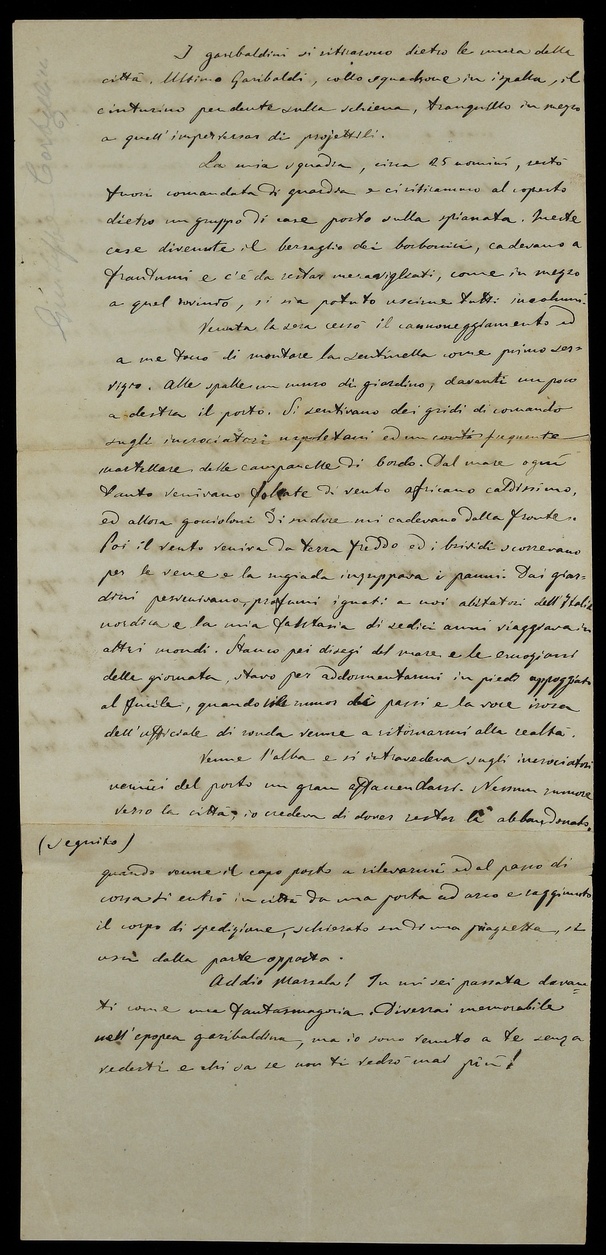 I garibaldini si ritrassero dietro le mura della
città. Ultimo Garibaldi, collo squadrone in ispalla, il
cinturino pendente sulla schiena, tranquillo in mezzo
a quell'imperversar di projettili.
La mia squadra, circa 25 uomini, restò
fuori comandata di guardia e ci ritirammo al coperto
dietro un gruppo di case posto sulla spianata. Queste
case divenute il bersaglio dei borbonici, cadevano a
frantumi e c'è da restar meravigliati, come in mezzo
a quel rovinio, si sia potuto uscirne tutti incolumi.
Venuta la sera cessò il cannoneggiamento ed
a me toccò di montare la sentinella come primo ser-
vizio. Alle spalle un muro di giardino, davanti un poco
a destra il porto. Si sentivano dei gridi di comando
sugli incrociatori napoletani ed un frequente
martellare delle campanelle di bordo. Dal mare ogni
tanto venivano folate di vento africano caldissimo,
ed allora goccioloni di sudore mi cadevano dalla fronte.
Poi il vento veniva da terra freddo ed i brividi scorrevano
per le vene e la rugiada inzuppava i panni. Dai giar-
dini pervenivano profumi ignoti a noi abitatori dell'Italia
nordica e la mia fantasia di sedici anni viaggiava in
altri mondi. Stanco pei disagi del mare e le emozioni
della giornata, stavo per addormentarmi in piedi appoggiato
al fucile, quando il rumor dei passi e la voce
dell'ufficiale di ronda venne a ritornarmi alla realtà.
Venne l'alba e si intravedeva sugli incrociatori
nemici del porto un gran affaccendarsi. Nessun rumore
verso la città, io credeva di dover restar là abbandonato,
(seguito)
quando venne il capo posto a rilevarmi ed al passo di
corsa si entrò in città da una porta ad arco e raggiunto
il corpo di spedizione, schierato su di una piazzetta, si
uscì dalla parte opposta.
Addio Marsala! Tu mi sei passata davan-
ti come una fantasmagoria. Diverrai memorabile
nell'epopea garibaldina, ma io sono venuto a te senza
vederti e chi sa se non ti vedrò mai più!